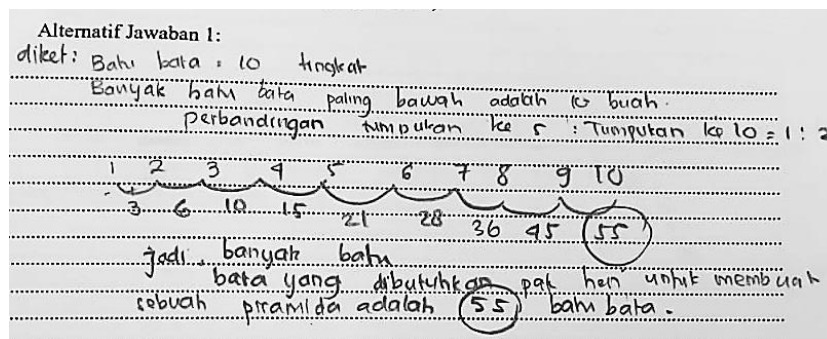 Alternatif Jawaban 1:
diket: Batu bata = 10 tingkat
Banyak batu bata paling bawah adalah 10 buah.
Perbandingan tumpukan ke 5 : Tumpukan ke 10 = 1 : 2
1 2 3 4 5 6 7 8 9 10
3 6 10 15 21 28 36 45 55
Jadi, banyak batu
bata yang dibutuhkan pak heri untuk membuat
sebuah piramida adalah 55 batu bata.